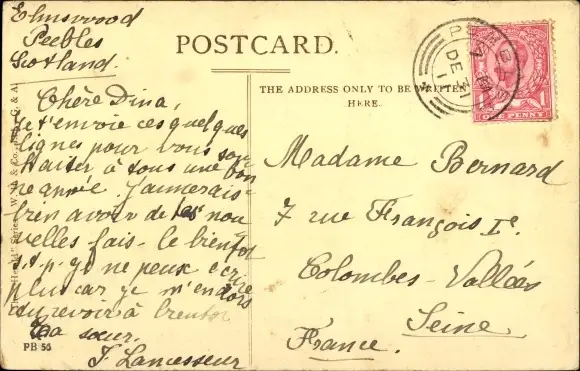 Elmswood
Peebles
Scotland.
POSTCARD.
THE ADDRESS ONLY TO BE WRITTEN
HERE.
Chère Dina,
Je t'envoie ces quelques
lignes pour vous sou
haiter à tous une bon
ne année. J'aimerais
bien avoir de tes nou
velles fais-le bientot
s.t.p. je ne peux écrire
plus car je m'endors
au revoir à bientot
Ta sœur.
F Lancesseur
PB 56
Madame Bernard
7 rue François Ie.
Colombes-Vallées
Seine
France.
DE 31
ONE PENNY